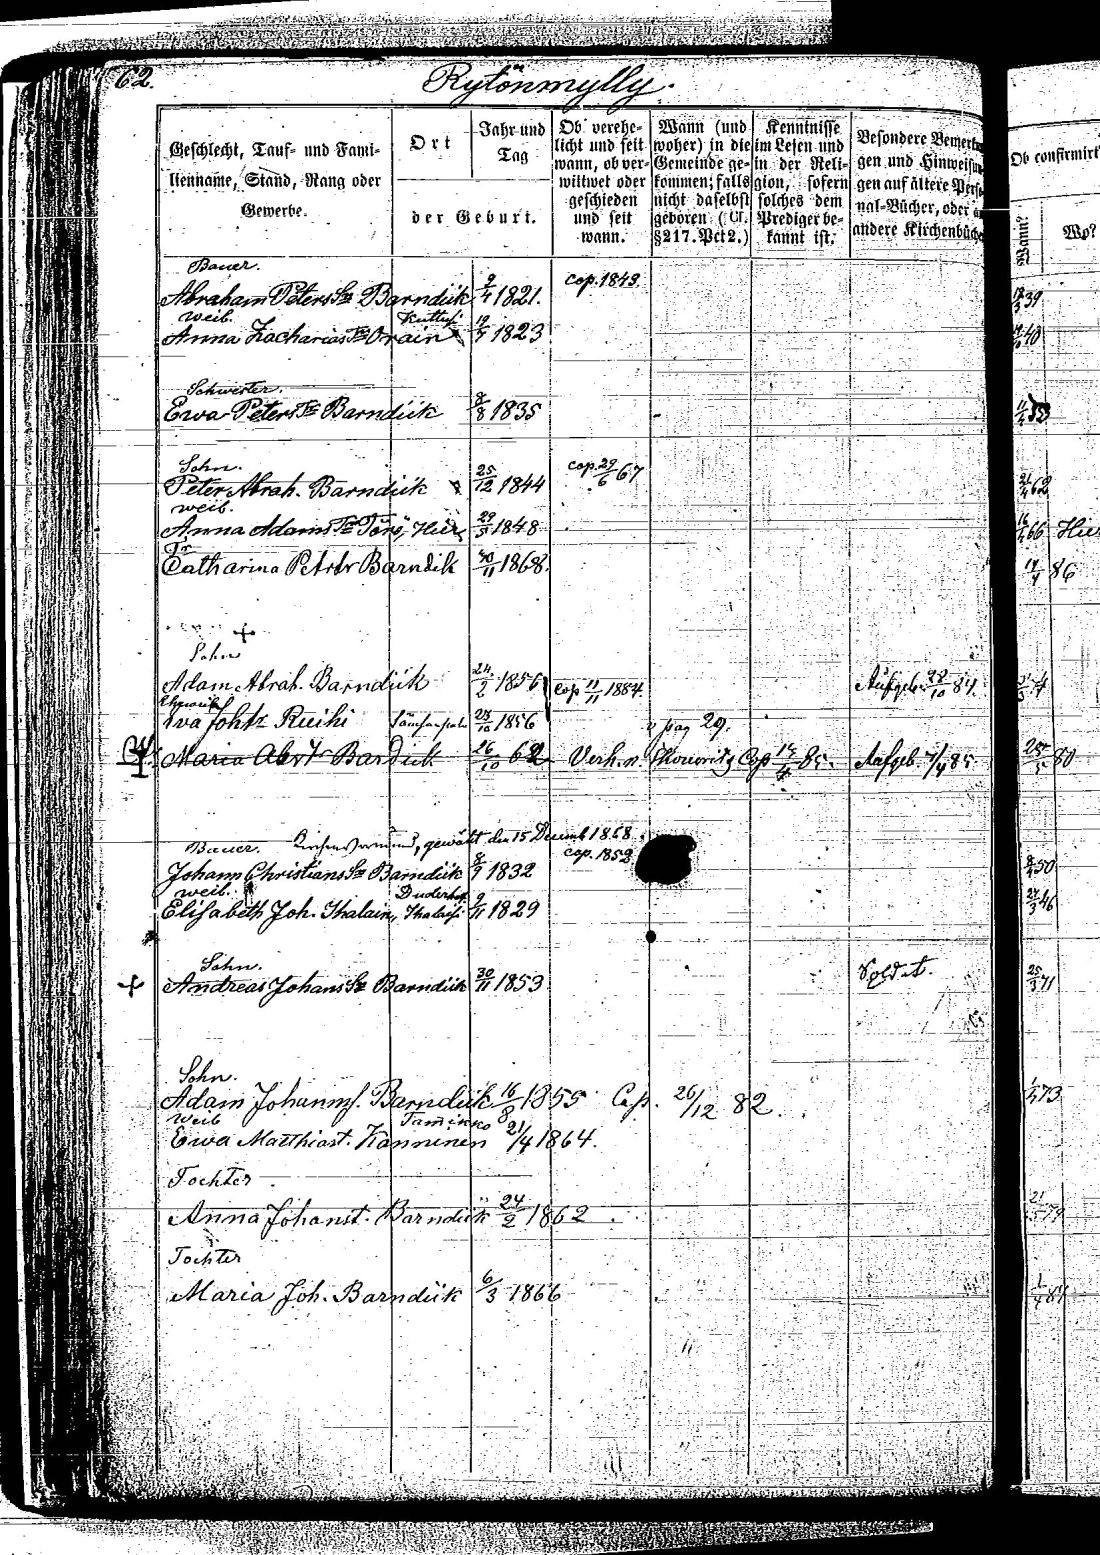 62.
Rytönmylly.
Geschlecht, Tauf- und Fami-
lienname, Stand, Rang oder
Gewerbe.
Ort
Jahr und
Tag
der Geburt.
Ob verehe-
licht und seit
wann, ob ver-
wittwet oder
geschieden
und seit
wann.
Wann (und
woher) in die
Gemeinde ge-
kommen; falls
nicht daselbst
geboren (Cf.
§217. Pct 2.)
Kenntnisse
im Lesen und
in der Reli-
gion, sofern
solches dem
Prediger be-
kannt ist.
Besondere Bemerk
gen und Hinweisun
gen auf ältere Perso
nal-Bücher, oder a
andere Kirchenbüche
Ob confirmirt
Wann?
Wo?
Bauer.
Abraham Peters Sn Barndük 9/4 1821. cop. 1843 39
weib. Kuttusi
Anna Zacharias Tr Orain 19/9 1823 40
Schwester.
Ewa Peters Tr Barndük 8/8 1835 53
Sohn.
Peter Abrah. Barndük 25/12 1844 cop. 29/6 67 62
weib.
Anna Adams Tr Törö, Hiir 29/5 1848 66
Tr
Catharina Petrtr Barndük 30/11 1868. 86
Sohn
Adam Abrah. Barndük 24/2 1856 Cop 11/11 1884. Aufgeb. 28/10 84
Eva Johtr Ruihi 1856 v pag 29.
Maria Abrtr Barndük 26/10 62 Verh. n. Cop 14/4 85. Aufgeb. 7/4 85 25/5 80
Bauer. gewählt den 15 Decemb 1868
Johann Christians Sn Barndük 8/9 1832 cop. 1852 50
weib. Duderhof
Elisabeth Joh. Ihalain, Ihalaisi 9/11 1829 46
Sohn.
Andreas Johans Sn Barndük 30/11 1853 Soldat. 25/3 71
Sohn.
Adam Johanns. Barndük 16/8 1855 Cop. 26/12 82. 73
weib Tamikko
Ewa Matthiast. Kanninen 21/4 1864.
Tochter
Anna Johanst. Barndük 24/2 1862
Tochter
Maria Joh. Barndük 6/3 1866